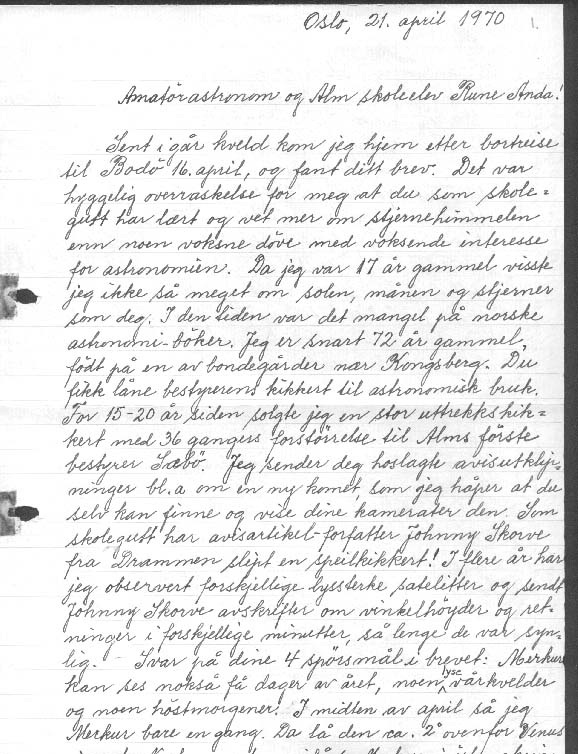 Oslo, 21. april 1970
1.
Amatörastronom og Alm skoleelev Rune Anda!
Sent i går kveld kom jeg hjem etter bortreise
til Bodö 16. april, og fant ditt brev. Det var
hyggelig overraskelse for meg at du som skole=
gutt har lært og vet mer om stjernehimmelen
enn noen voksne döve med voksende interesse
for astronomien. Da jeg var 17 år gammel visste
jeg ikke så meget om solen, månen og stjerner
som deg. I den tiden var det mangel på norske
astronomi-böker. Jeg er snart 72 år gammel,
födt på en av bondegårder nær Kongsberg. Du
fikk låne bestyrerens kikkert til astronomisk bruk.
For 15-20 år siden solgte jeg en stor uttrekkskik=
kert med 36 gangers forstörrelse til Alms förste
bestyrer Sæbö. Jeg sender deg hoslagte avisutklip=
ninger bl.a om en ny komet, som jeg håper at du
selv kan finne og vise dine kamerater den. Som
skolegutt har avisartikel-forfatter Johnny Skorve
fra Drammen slipt en speilkikkert! I flere år har
jeg observert forskjellige lyssterke satelitter og sendt
Johnny Skorve avskrifter om vinkelhöyder og ret-
ninger i forskjellige minutter, så lenge de var syn-
lig. - Svar på dine 4 spörsmål i brevet: Merkur
kan ses nokså få dager av året, noen lyse vårkvelder
og noen höstmorgener. I midten av april så jeg
Merkur bare en gang. Da lå den ca. 2° ovenfor Venus